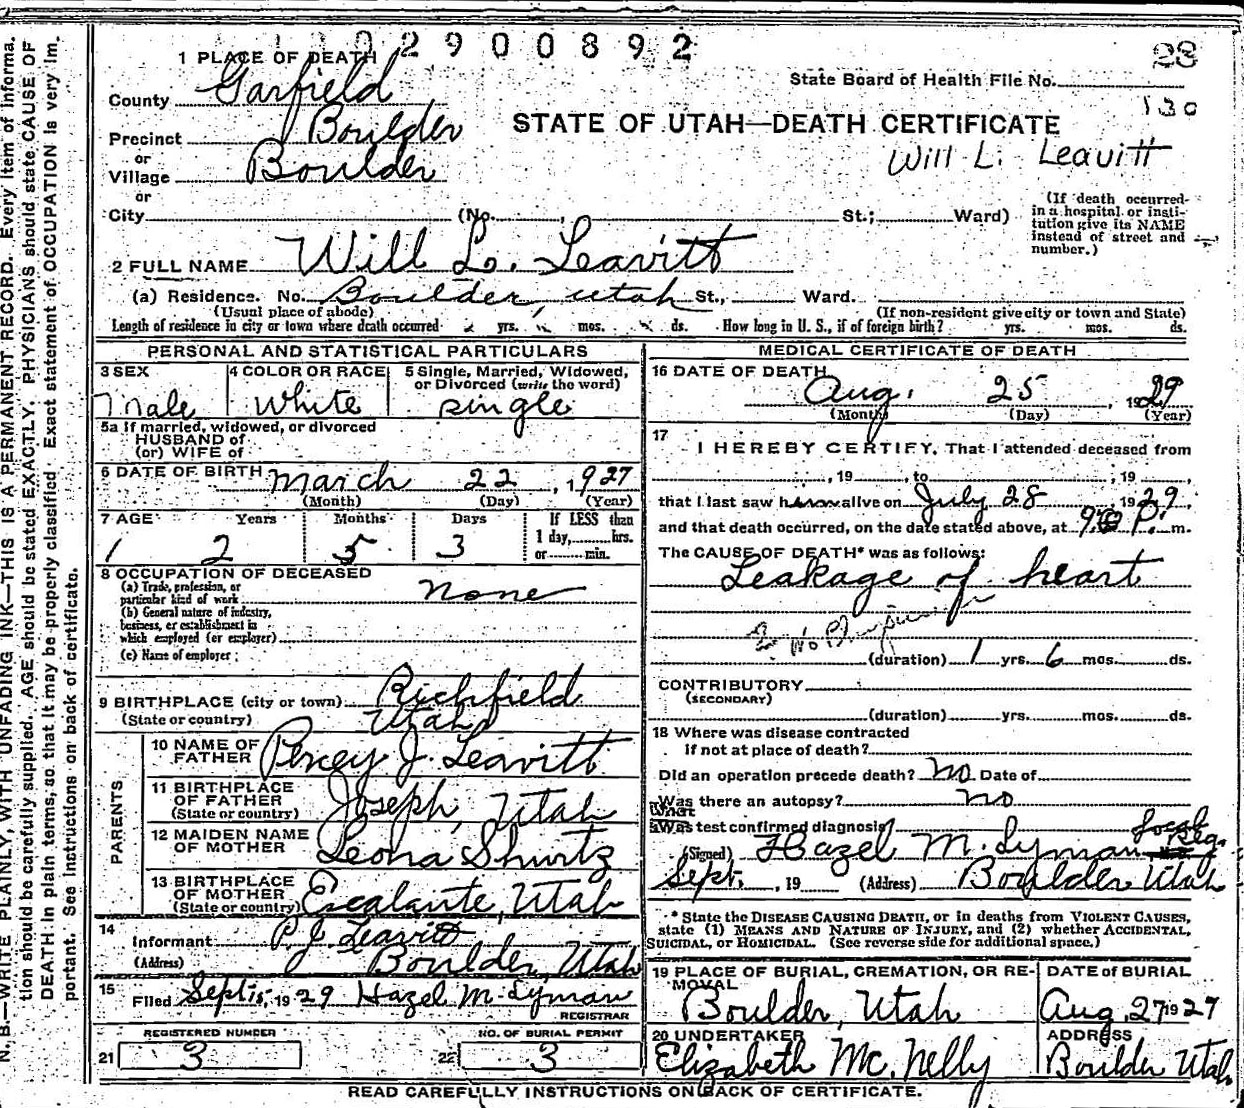 N. B.—WRITE PLAINLY, WITH UNFADING INK—THIS IS A PERMANENT RECORD. Every item of informa-
tion should be carefully supplied. AGE should be stated EXACTLY. PHYSICIANS should state CAUSE OF
DEATH in plain terms, so that it may be properly classified. Exact statement of OCCUPATION is very im-
portant. See instructions on back of certificate.
02900892
28
1 PLACE OF DEATH
State Board of Health File No.
130
County Garfield
STATE OF UTAH—DEATH CERTIFICATE
Precinct Boulder
Will L. Leavitt
or
Village Boulder
or
City (No. , St.; Ward)
(If death occurred
in a hospital or insti-
tution give its NAME
instead of street and
number.)
2 FULL NAME Will L. Leavitt
(a) Residence. No. Boulder, Utah St., Ward.
(Usual place of abode) (If non-resident give city or town and State)
Length of residence in city or town where death occurred yrs. mos. ds. How long in U. S., if of foreign birth? yrs. mos. ds.
PERSONAL AND STATISTICAL PARTICULARS
3 SEX Male
4 COLOR OR RACE White
5 Single, Married, Widowed,
or Divorced (write the word)
single
5a If married, widowed, or divorced
HUSBAND of
(or) WIFE of
6 DATE OF BIRTH March 22, 1927
(Month) (Day) (Year)
7 AGE Years Months Days If LESS than
1 day, hrs.
or min.
2 5 3
8 OCCUPATION OF DECEASED
(a) Trade, profession, or
particular kind of work None
(b) General nature of industry,
business, or establishment in
which employed (or employer)
(c) Name of employer
9 BIRTHPLACE (city or town) Richfield
(State or country) Utah
PARENTS
10 NAME OF
FATHER Percy J. Leavitt
11 BIRTHPLACE
OF FATHER
(State or country) Joseph, Utah
12 MAIDEN NAME
OF MOTHER Leona Shurtz
13 BIRTHPLACE
OF MOTHER
(State or country) Escalante, Utah
14 Informant P. J. Leavitt
(Address) Boulder, Utah
15 Filed Sept 15, 1929 Hazel M. Lyman
REGISTRAR
REGISTERED NUMBER NO. OF BURIAL PERMIT
21 3 22 3
MEDICAL CERTIFICATE OF DEATH
16 DATE OF DEATH
Aug. 25, 1929
(Month) (Day) (Year)
17 I HEREBY CERTIFY, That I attended deceased from
, 19 , to , 19 ,
that I last saw him alive on July 28, 1929,
and that death occurred, on the date stated above, at P. m.
The CAUSE OF DEATH* was as follows:
Leakage of heart
No Physician
(duration) 1 yrs. 6 mos. ds.
CONTRIBUTORY
(SECONDARY)
(duration) yrs. mos. ds.
18 Where was disease contracted
if not at place of death?
Did an operation precede death? No Date of
Was there an autopsy? no
What
test confirmed diagnosis
(Signed) Hazel M. Lyman, Local Reg.
Sept. , 19 (Address) Boulder Utah
* State the DISEASE CAUSING DEATH, or in deaths from VIOLENT CAUSES,
state (1) MEANS AND NATURE OF INJURY, and (2) whether ACCIDENTAL,
SUICIDAL, or HOMICIDAL. (See reverse side for additional space.)
19 PLACE OF BURIAL, CREMATION, OR RE-
MOVAL
Boulder, Utah
DATE of BURIAL
Aug. 27 1927
20 UNDERTAKER
Elizabeth McNelly
ADDRESS
Boulder Utah
READ CAREFULLY INSTRUCTIONS ON BACK OF CERTIFICATE.